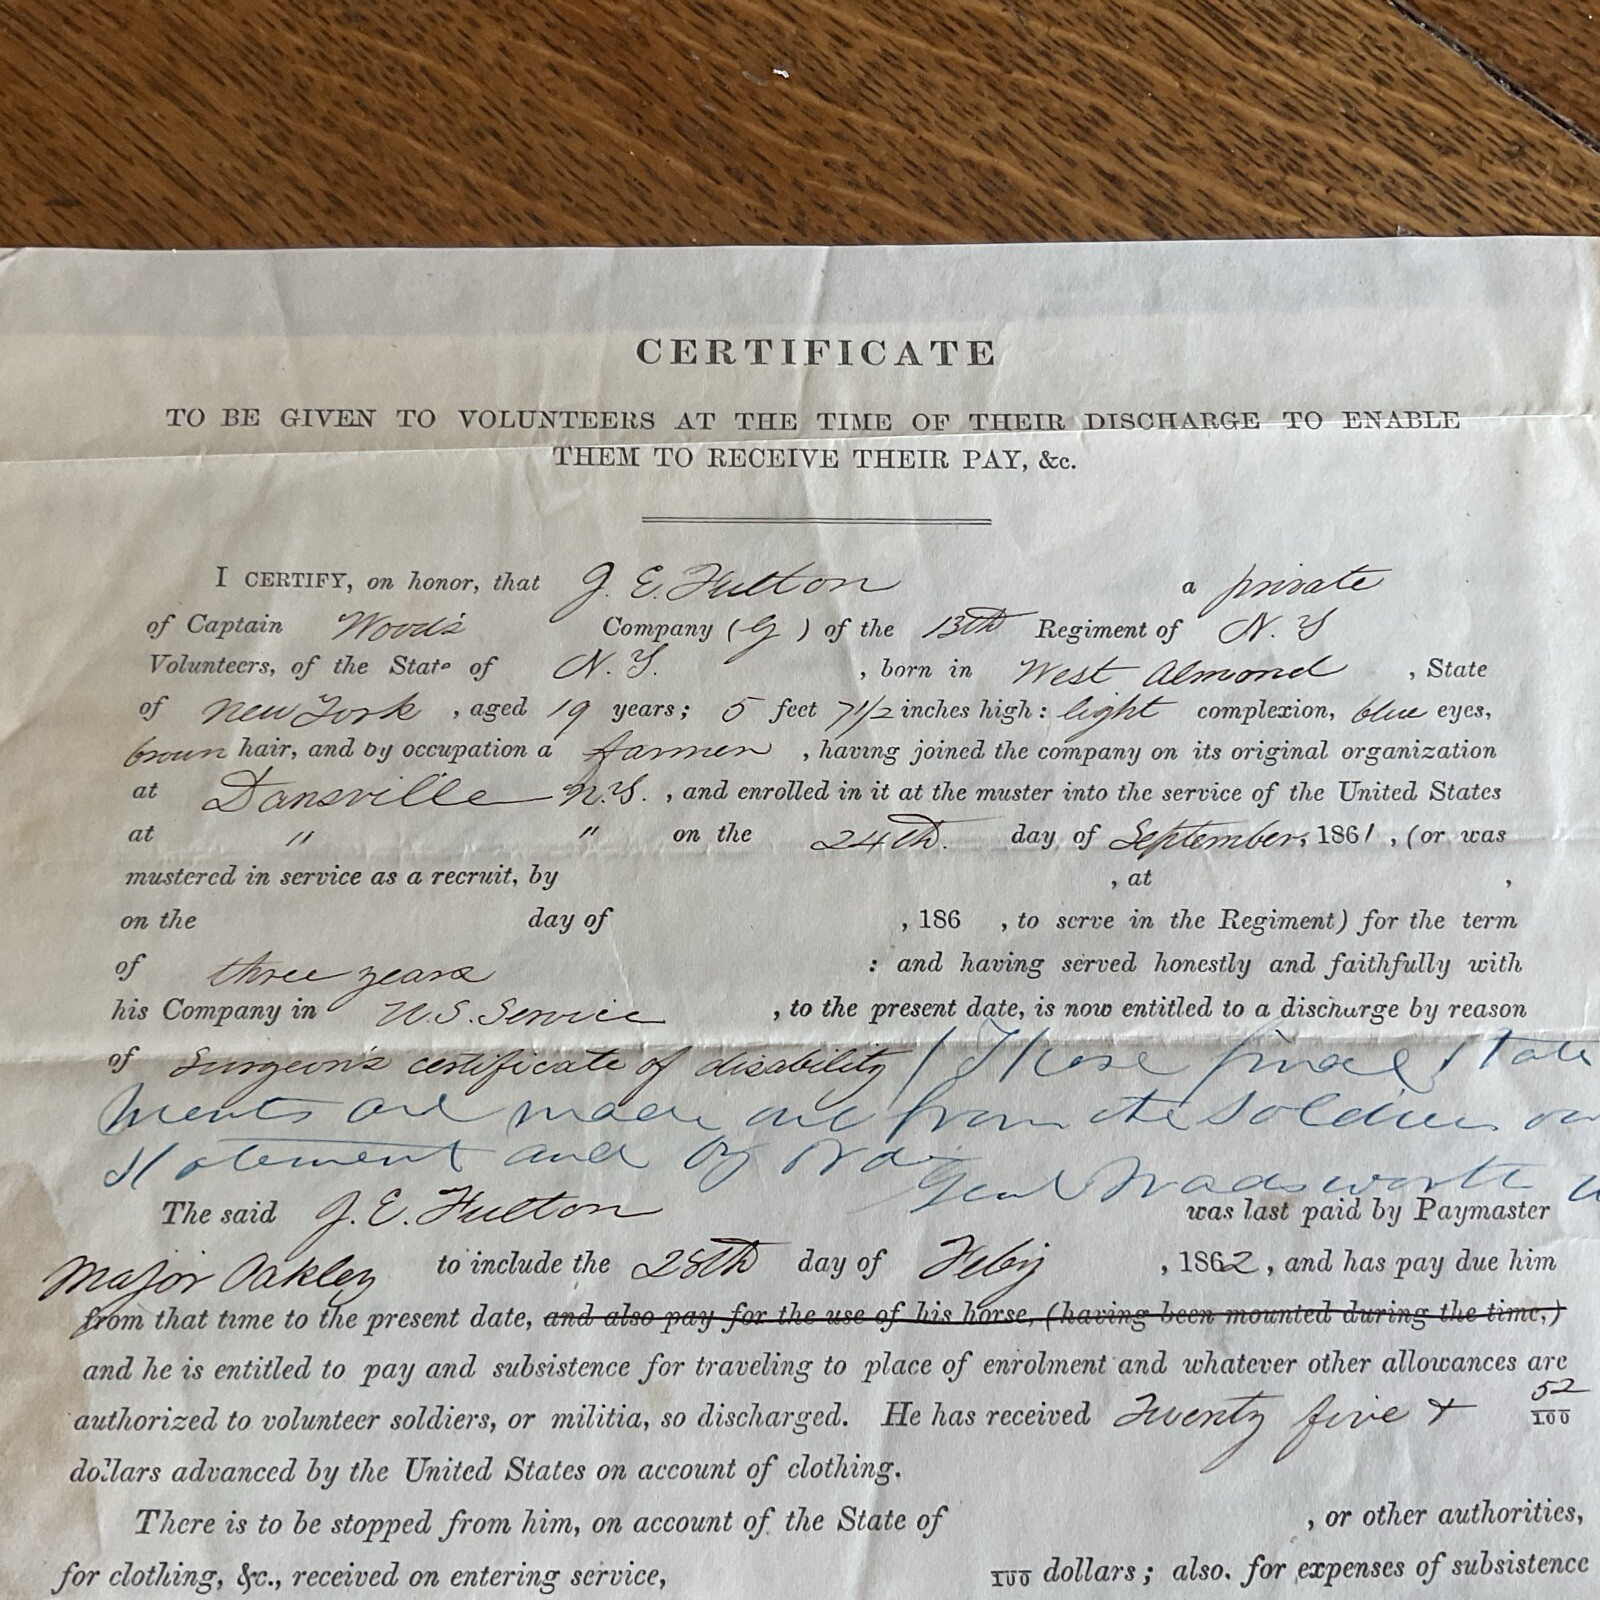 CERTIFICATE
TO BE GIVEN TO VOLUNTEERS AT THE TIME OF THEIR DISCHARGE TO ENABLE
THEM TO RECEIVE THEIR PAY, &c.
I CERTIFY, on honor, that J. E. Fulton a private
of Captain Wood's Company (G) of the 13th Regiment of N. Y
Volunteers, of the State of N. Y. , born in West Almond , State
of New York , aged 19 years; 5 feet 7 1/2 inches high: light complexion, blue eyes,
brown hair, and by occupation a farmer , having joined the company on its original organization
at Dansville N.Y. , and enrolled in it at the muster into the service of the United States
at " " on the 24th. day of September, 1861 , (or was
mustered in service as a recruit, by , at ,
on the day of , 186 , to serve in the Regiment) for the term
of three years : and having served honestly and faithfully with
his Company in U.S. Service , to the present date, is now entitled to a discharge by reason
of Surgeon's certificate of disability / These final state
ments are made out from the soldiers own
statement and by order Genl Wadsworth
The said J. E. Fulton was last paid by Paymaster
Major Oakley to include the 28th day of Feby , 1862 , and has pay due him
from that time to the present date, and also pay for the use of his horse, (having been mounted during the time,)
and he is entitled to pay and subsistence for traveling to place of enrolment and whatever other allowances are
authorized to volunteer soldiers, or militia, so discharged. He has received Twenty five & 52/100
dollars advanced by the United States on account of clothing.
There is to be stopped from him, on account of the State of , or other authorities,
for clothing, &c., received on entering service, 100 dollars; also, for expenses of subsistence